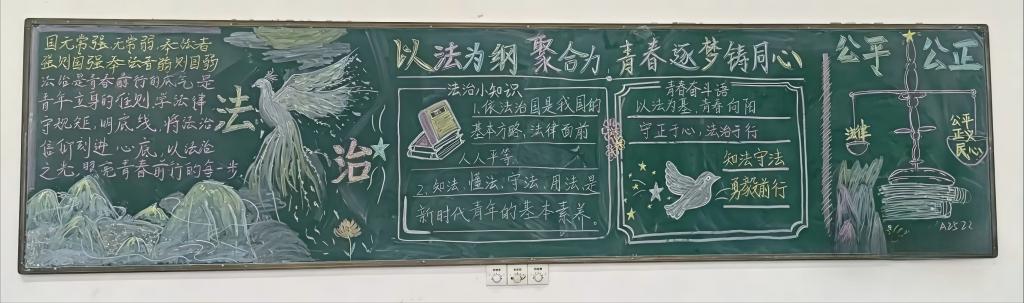 国无常强,无常弱,奉法者
强则国强奉法者弱则国弱
法治是青春前行的底气,是
青年立身的准则,学法律
守规矩,明底线,将法治
信仰刻进心底,以法治
之光,照亮青春前行的每一步.
法
治
以法为纲 聚合力 青春逐梦铸同心
法治小知识
1.依法治国是我国的
基本方略,法律面前
人人平等.
2.知法,懂法,守法,用法,是
新时代青年的基本素养。
青春奋斗语
以法为基,青春向阳
守正于心,法治于行
知法守法
勇毅前行
公平 公正
法律
公平
正义
民心
A2522